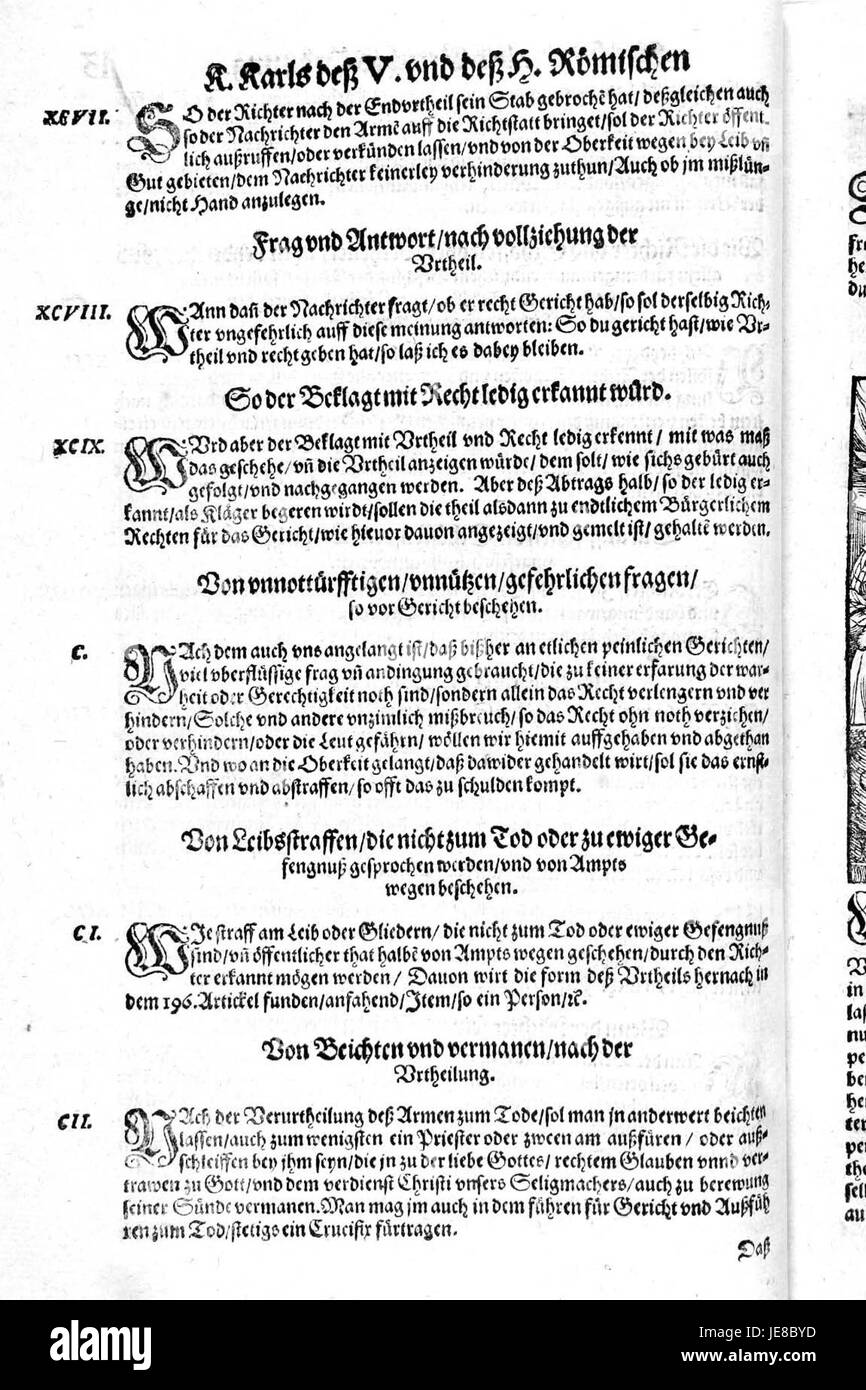 K. Karls deß V. vnd deß H. Römischen
XCVII. SO der Richter nach der Endvrtheil sein Stab gebrochē hat/ deßgleichen auch
so der Nachrichter den Armē auff die Richtstatt bringet/ sol der Richter öffent
lich außruffen/ oder verkünden lassen/ vnd von der Oberkeit wegen bey Leib vñ
Gut gebieten/ dem Nachrichter keinerley verhinderung zuthun/ Auch ob jm mißlün-
ge/ nicht Hand anzulegen.
Frag vnd Antwort/ nach vollziehung der
Vrtheil.
XCVIII. WAnn dañ der Nachrichter fragt/ ob er recht Gericht hab/ so sol derselbig Rich-
ter vngefehrlich auff diese meinung antworten: So du gericht hast/ wie Vr-
theil vnd recht geben hat/ so laß ich es dabey bleiben.
So der Beklagt mit Recht ledig erkannt würd.
XCIX. WVrd aber der Beklagt mit Vrtheil vnd Recht ledig erkennt/ mit was maß
das geschehe/ vñ die Vrtheil anzeigen würde/ dem solt/ wie sichs gebürt auch
gefolgt/ vnd nachgegangen werden. Aber deß Abtrags halb/ so der ledig er-
kannt/ als Kläger begeren wirdt/ sollen die theil alsdann zu endtlichem Bürgerlichem
Rechten für das Gericht/ wie hievor davon angezeigt/ vnd gemelt ist/ gehaltē werden.
Von vnnottürfftigen/ vnnützen/ gefehrlichen fragen/
so vor Gericht beschehen.
C. NAch dem auch vns angelangt ist/ daß bißher an etlichen peinlichen Gerichten/
viel vberflüssige frag vñ andingung gebraucht/ die zu keiner erfarung der war-
heit oder Gerechtigkeit noth sind/ sondern allein das Recht verlengern vnd ver
hindern/ Solche vnd andere vnzimlich mißbreuch/ so das Recht ohn noth verziehen/
oder verhindern/ oder die Leut gefährn/ wöllen wir hiemit auffgehaben vnd abgethan
haben. Vnd wo an die Oberkeit gelangt/ daß dawider gehandelt wirt/ sol sie das ernst-
lich abschaffen vnd abstraffen/ so offt das zu schulden kompt.
Von Leibsstraffen/ die nicht zum Tod oder zu ewiger Ge-
fengnuß gesprochen werden/ vnd von Ampts
wegen beschehen.
CI. WJe straff am Leib oder Gliedern/ die nicht zum Tod oder ewiger Gefengnuß
sind/ vñ öffentlicher that halbē von Ampts wegen geschehen/ durch den Rich-
ter erkannt mögen werden/ Dauon wirt die form deß Vrtheils hernach in
dem 196. Artickel funden/ anfahend/ Item/ so ein Person/ ꝛc.
Von Beichten vnd vermanen/ nach der
Vrtheilung.
CII. NAch der Verurtheilung deß Armen zum Tode/ sol man jn anderwert beichten
lassen/ auch zum wenigsten ein Priester oder zween am außfüren/ oder auß-
schleiffen bey jhm seyn/ die jn zu der liebe Gottes/ rechtem Glauben vnnd ver-
trawen zu Gott/ vnd dem verdienst Christi vnsers Seligmachers/ auch zu berewung
seiner Sünde vermanen. Man mag jm auch in dem führen für Gericht vnd Außfüh
ren zum Tod/ stetigs ein Crucifix fürtragen.
Daß
alamy stock photo
JE8BYD
www.alamy.com